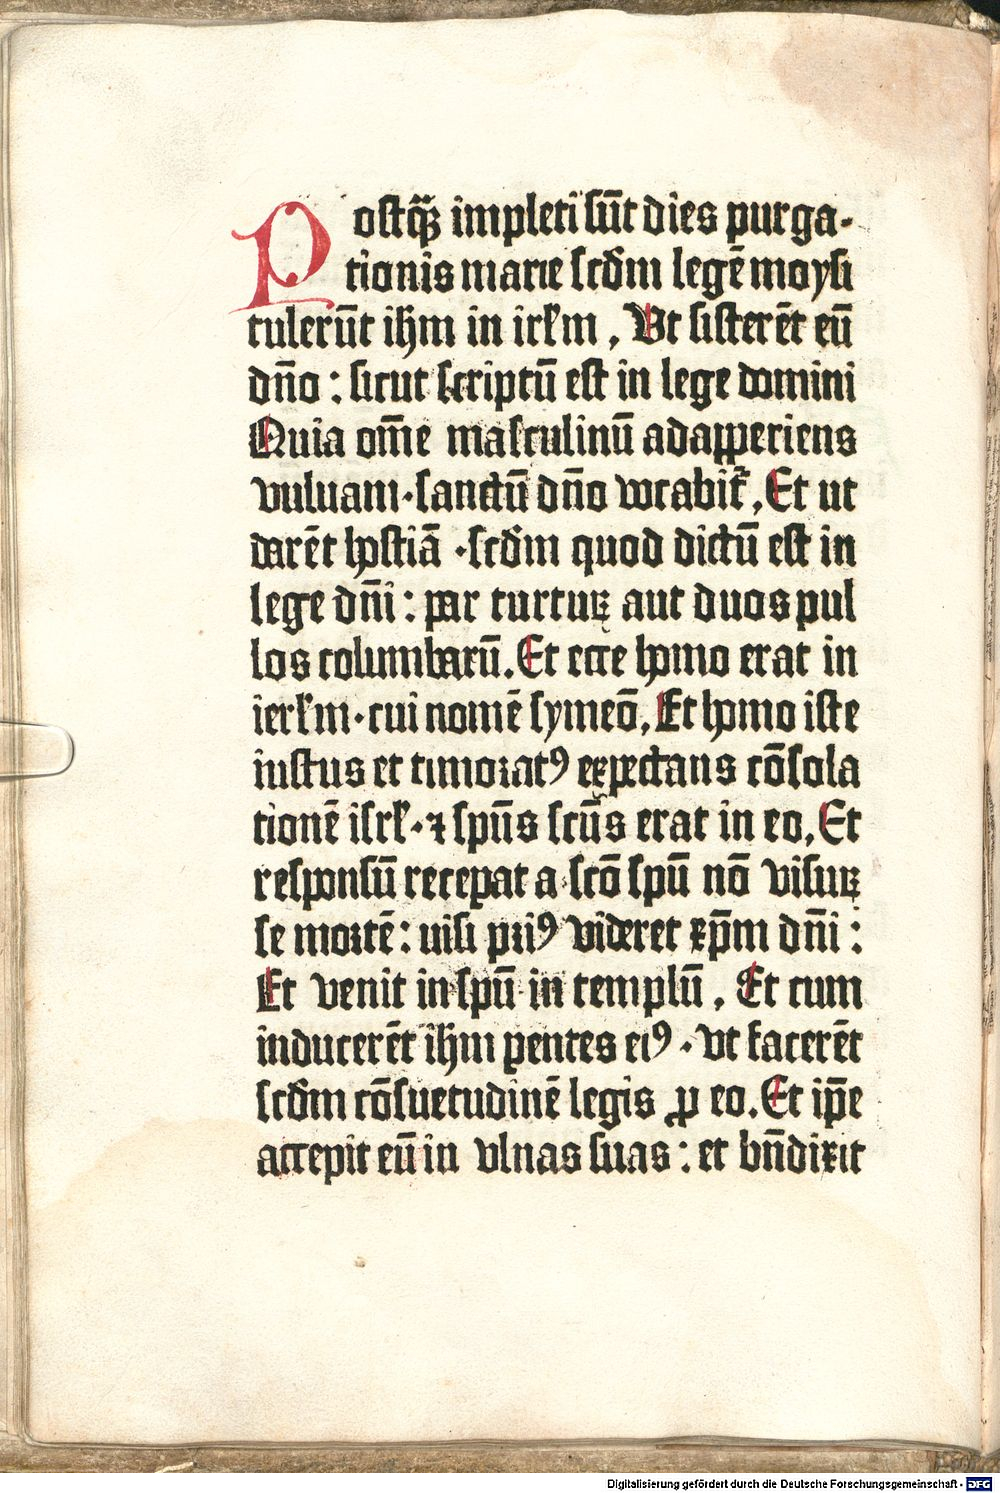 Postq̃ꝫ impleti sūt dies purga-
tionis marie scďm legē moysi
tulerūt ihm in irlm , Vt sisterēt eū
dño : sicut scriptū est in lege domini
Quia om̄e masculinū adapperiens
vuluam · sanctū dño vocabit᷑ , Et ut
darēt hostiā · scďm quod dictū est in
lege dñi : par turtuꝝ aut duos pul
los columbarū . Et ecce homo erat in
ierlm · cui nomē symeō , Et homo iste
iustus et timoratꝰ expectans cōsola
tionē isrl · ⁊ spūs scūs erat in eo , Et
responsū recepat a scō spū nō visuꝝ
se mortē : nisi priꝰ videret xp̄m dñi :
Et venit in spū in templū , Et cum
inducerēt ihm ꝑentes eiꝰ · vt facerēt
scďm cōsuetudinē legis ꝓ eo . Et ip̄e
accepit eū in vlnas suas : et bn̄dixit
Digitalisierung gefördert durch die Deutsche Forschungsgemeinschaft - DFG